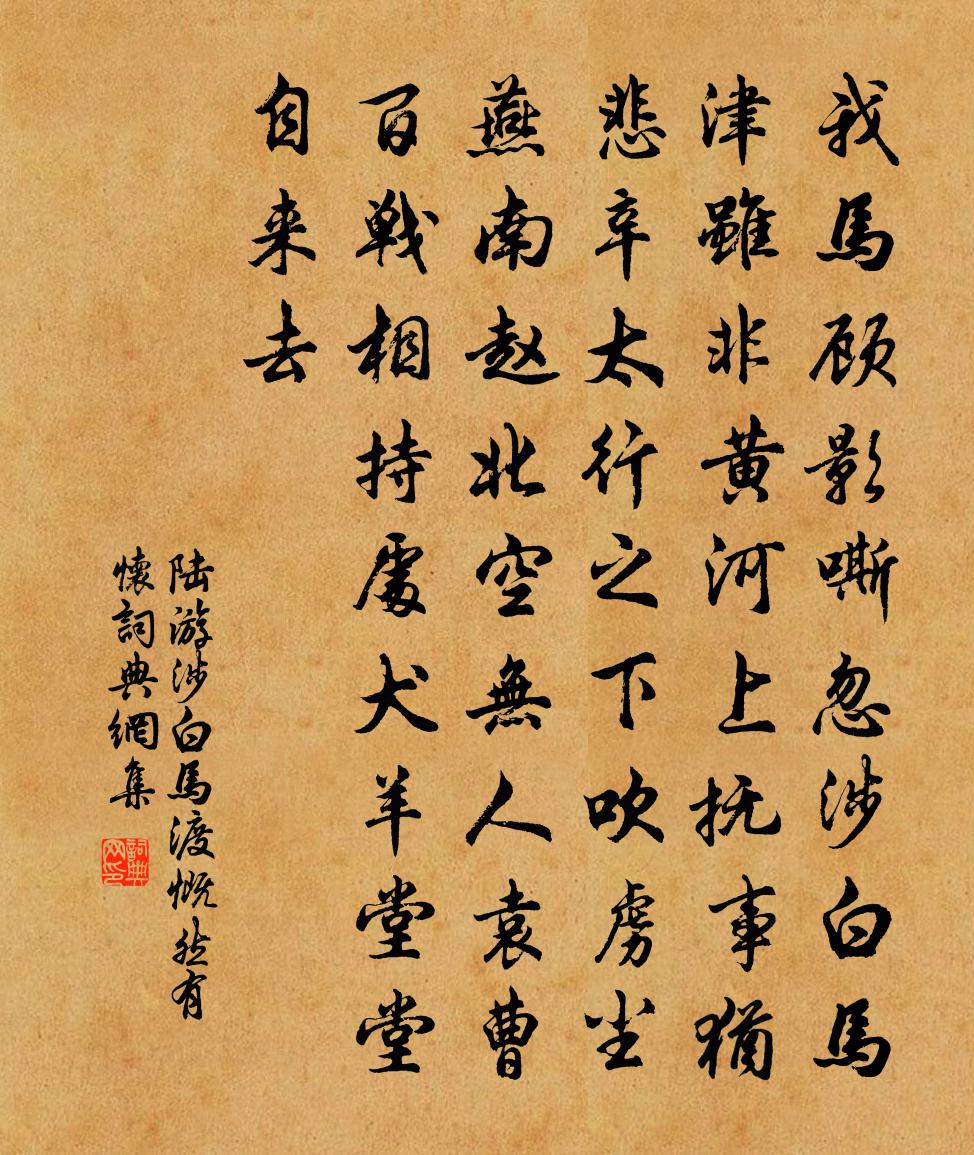 我馬顾影嘶忽涉白馬
津雖非黄河上抚事猶
悲辛太行之下吹虏尘
燕南赵北空無人袁曹
百戦相持處犬羊堂堂
自来去
陆游涉白馬渡慨然有
懷詞典網集
詞典网印